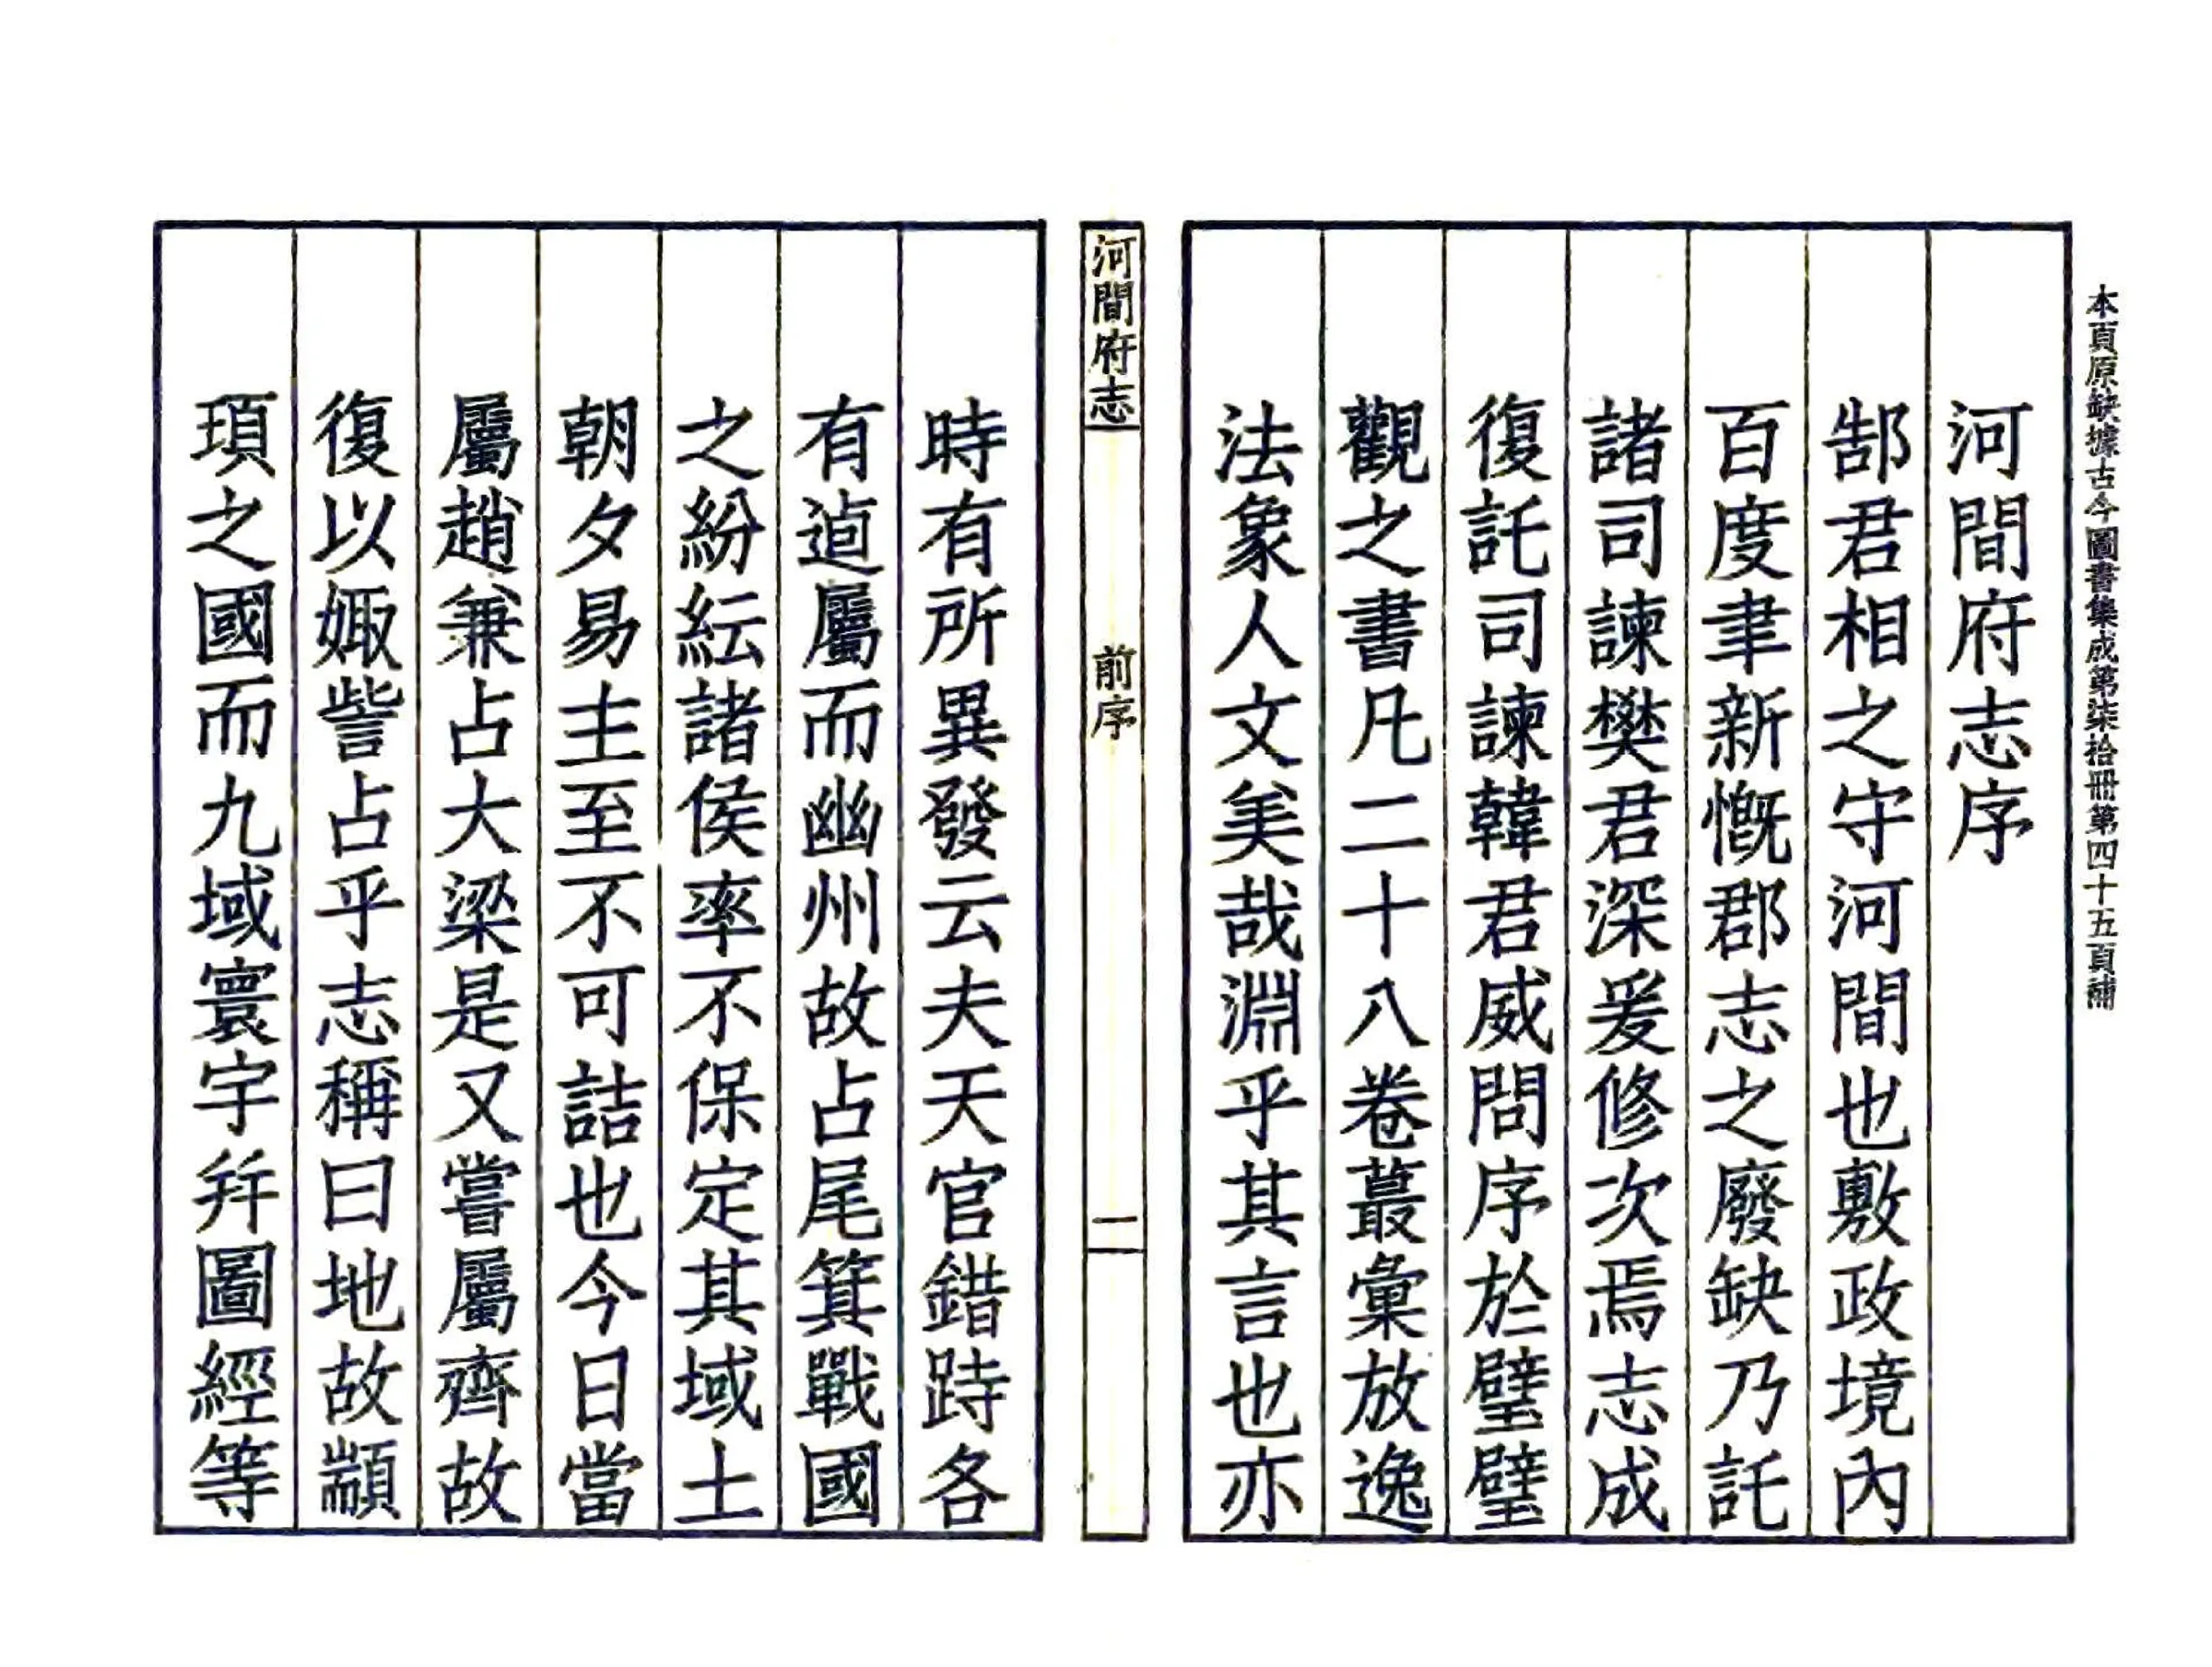 本頁原缺據古今圖書集成第柒拾冊第四十五頁補
河間府志序
郜君相之守河間也敷政境內
百度聿新慨郡志之廢缺乃託
諸司諫樊君深爰修次焉志成
復託司諫韓君威問序於璧璧
觀之書凡二十八卷蕞彙放逸
法象人文美哉淵乎其言也亦
河間府志
前序
二
時有所異發云夫天官錯跱各
有逌屬而幽州故占尾箕戰國
之紛紜諸侯率不保定其域土
朝夕易主至不可詰也今日當
屬趙兼占大梁是又嘗屬齊故
復以娵訾占乎志稱曰地故顓
頊之國而九域寰宇并圖經等